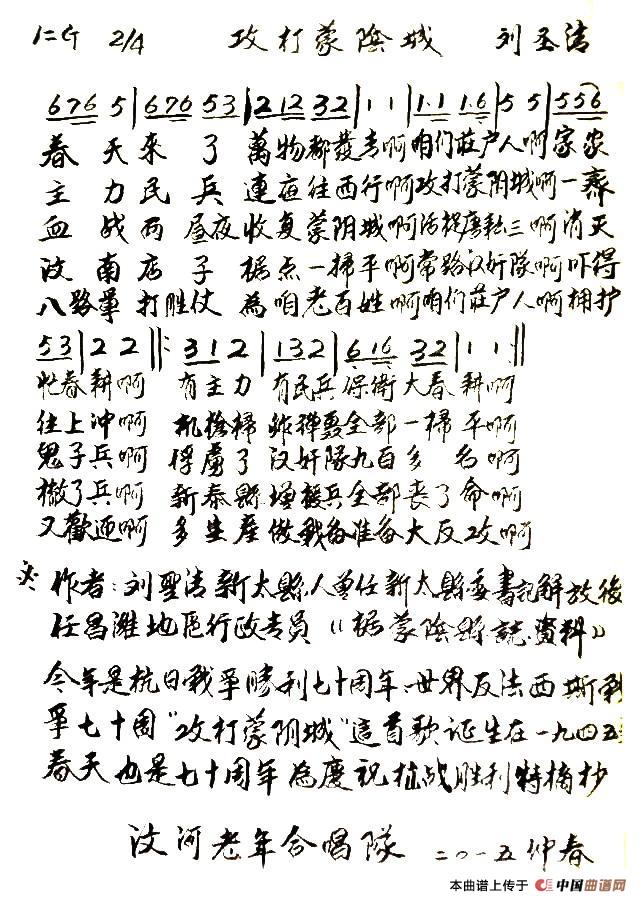 1=G 2/4 攻打蒙陰城 刘圣清
676 5 | 676 53 | 2 12 32 | 1 1 | 1·1 1·6 | 5 5 | 556
春天来了萬物都發青啊咱们莊户人啊家家
主力民兵連夜往西行啊攻打蒙阴城啊一齐
血战两昼夜收复蒙阴城啊活捉 三啊消灭
汶南店子据点一掃平啊常路汉奸隊啊吓得
八路軍打胜仗為咱老百姓啊咱们莊户人啊拥护
53 | 2 2 ‖: 3 1 2 | 1 3 2 | 6 1 6 32 | 1 1 :‖
忙春耕啊 有主力有民兵保衛大春耕啊
往上冲啊 机槍掃炸弹轰全部一掃平啊
鬼子兵啊 俘虜了汉奸隊九百多名啊
撤了兵啊 新泰縣增援兵全部丧了命啊
又歡迎啊 多生產做战备准备大反攻啊
作者:刘聖清新太縣人曾任新太縣委書記解放後
任昌潍地區行政专員《据蒙陰縣誌資料》
今年是抗日战爭勝利七十周年、世界反法西斯战
爭七十周"攻打蒙阴城"這首歌诞生在一九四五
春天也是七十周年為慶祝抗战胜利特摘抄
汶河老年合唱隊 二〇一五仲春
本曲谱上传于 中国曲谱网